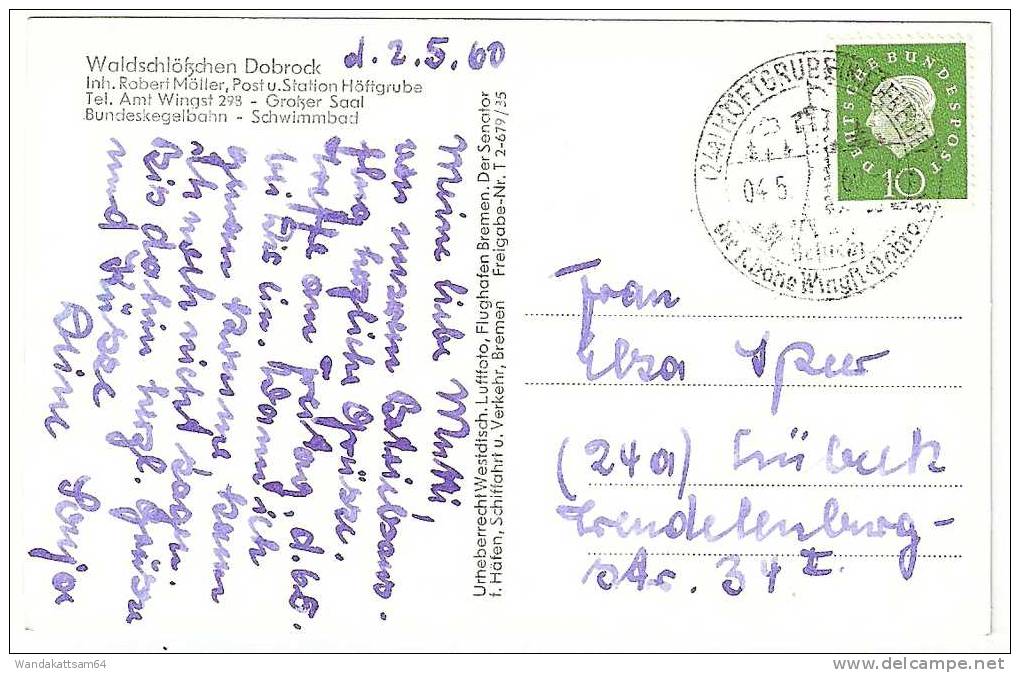 Waldschlößchen Dobrock
Inh. Robert Möller, Post u. Station Höftgrube
Tel. Amt Wingst 298 - Großer Saal
Bundeskegelbahn - Schwimmbad
d. 2.5.60
Meine liebe Mutti,
von unserem Betriebsaus-
flug herzliche Grüße.
am Freitag, d. 6.5.
bis in. Wann ich
genau komme kann
ich noch nicht sagen.
Bis dahin herzl. Grüße
und Küsse
Deine Sonja
Urheberrecht Westdtsch. Luftfoto, Flughafen Bremen. Der Senator
f. Häfen, Schiffahrt u. Verkehr, Bremen Freigabe-Nr. T 2-679/35
DEUTSCHE BUNDESPOST
10
(24a) HÖFTGRUBE
04.5
Frau
Elsa Speer
(24a) Lübeck
Trendelenburg-
str. 34 I.
Wandakattsam64
delcampe.net